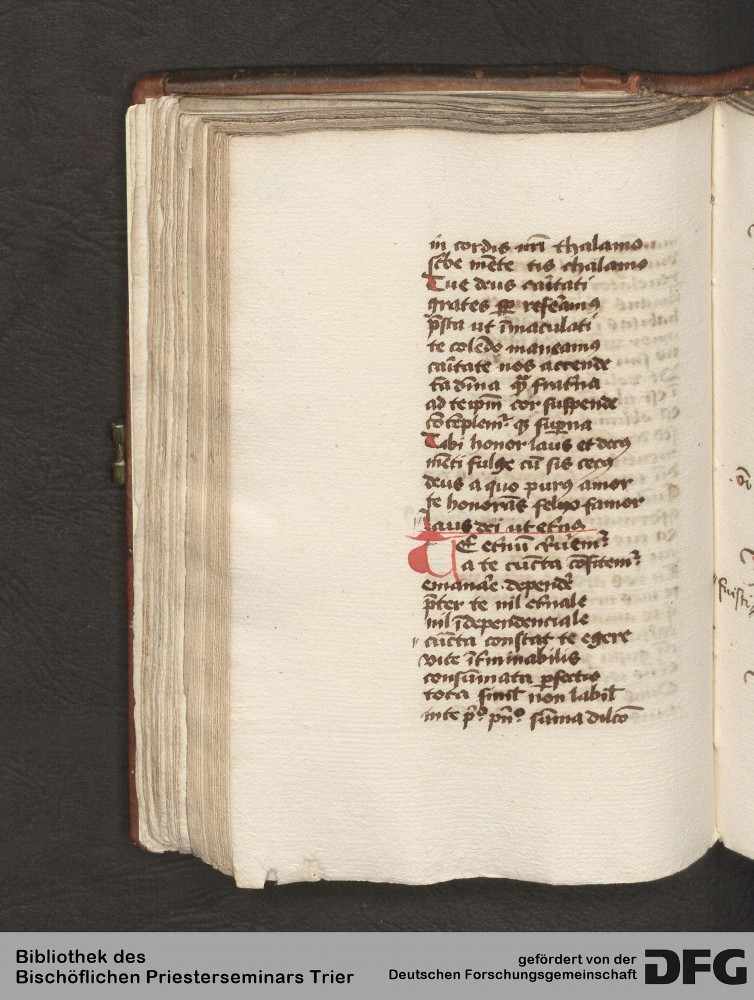 in cordis nr̄i thalamo
scͥbe mēte tis chalamo
Tue deus caͥtati
grates sꝑ referamꝰ
p̄sta ut īmaculati
te colēdo maneamꝰ
caͥtate nos accende
tā dīna qͣꝫ frat̄na
ad teip̄m cor suspende
cōtēplemͬ qꝫ suꝑna
Tibi honor laus et decꝰ
mēti fulge cū sis cecꝰ
deus a quo purꝰ amor
te honorās felixꝙ famor
Laus dei ut et̄nus
TE et̄nū
a te cuncta cōfitemͬ
emanaͬe dependeͬ
p̄ter te nil et̄nale
nil īdependenciale
cūcta constat te egere
vite īt̄minabilis
consūmata ꝑfectio
tota simͥl non labil̄
in te sūma dilcō
Bibliothek des
Bischöflichen Priesterseminars Trier
gefördert von der
Deutschen Forschungsgemeinschaft
DFG